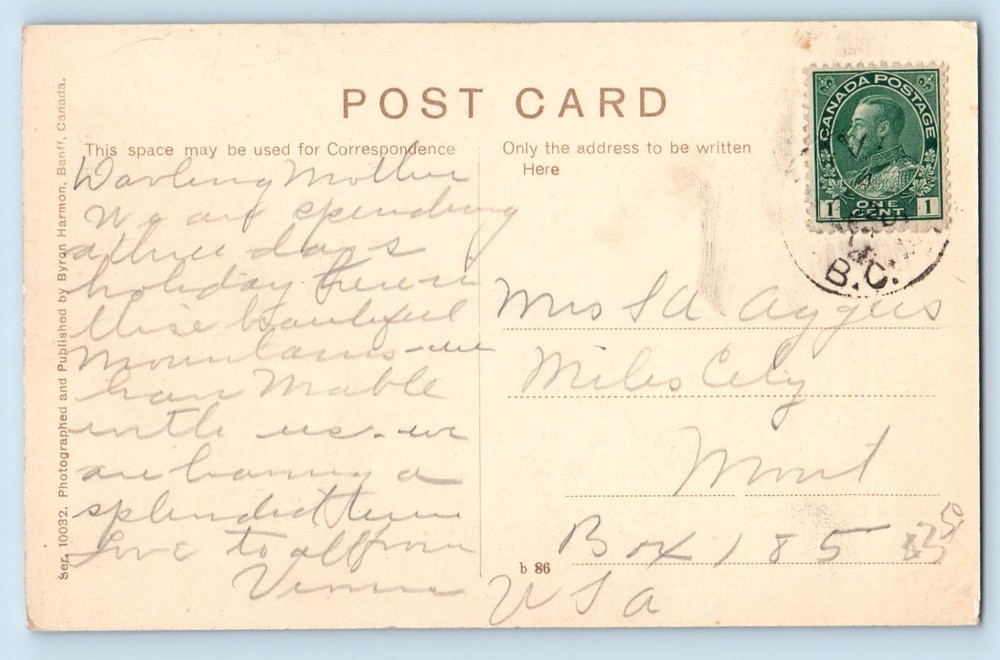 POST CARD
This space may be used for Correspondence
Only the address to be written
Here
Darling Mother
We are spending
a three days
holiday here in
these beautiful
mountains - we
have Mable
with us - we
are having a
splendid time
Love to all from
Mrs I A
Miles City
Mont
Box 185
U S A
CANADA POSTAGE
1 ONE CENT 1
B.C.
b 86
Ser. 10032. Photographed and Published by Byron Harmon, Banff, Canada.